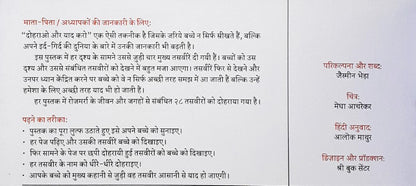 माता-पिता / अध्यापकों की जानकारी के लिए:
"दोहराओ और याद करो" एक ऐसी तकनीक है जिसके जरिये बच्चे न सिर्फ सीखते हैं, बल्कि
अपने इर्द-गिर्द की दुनिया के बारे में उनकी जानकारी भी बढ़ती है।
इस पुस्तक में हर दृश्य के सामने उससे जुड़ी चार मुख्य तसवीरें दी गयी हैं। बच्चों को उस
दृश्य और उससे संबंधित तसवीरों को देखने में बहुत मजा आएगा। तसवीरें फिर से देखने और
उनपर ध्यान केंद्रित करने पर बच्चे को वे न सिर्फ अच्छी तरह समझ में आ जाती हैं बल्कि उन्हें
हमेशा के लिए अच्छी तरह याद भी हो जाती हैं।
हर पुस्तक में रोजमर्रा के जीवन और जगहों से संबंधित २८ तसवीरों को दोहराया गया है।
पढ़ने का तरीका:
• पुस्तक का पूरा लुत्फ उठाते हुए इसे अपने बच्चे को सुनाइए।
• हर पेज पढ़िए और उसकी तसवीरें बच्चे को दिखाइए।
• फिर सामने के पेज पर छपी दोहराई हुई तसवीरों को बच्चे को दिखाइए।
• हर तसवीर के नाम को धीरे-धीरे दोहराइए।
• आपके बच्चे को मुख्य कहानी से जुड़ी वह तसवीर आसानी से याद हो जाएगी।
परिकल्पना और शब्द:
जैस्मीन भेडा
चित्र:
मेघा आचरेकर
हिंदी अनुवाद:
आलोक माथुर
डिजाइन और प्रॉडक्शन:
श्री बुक सेंटर